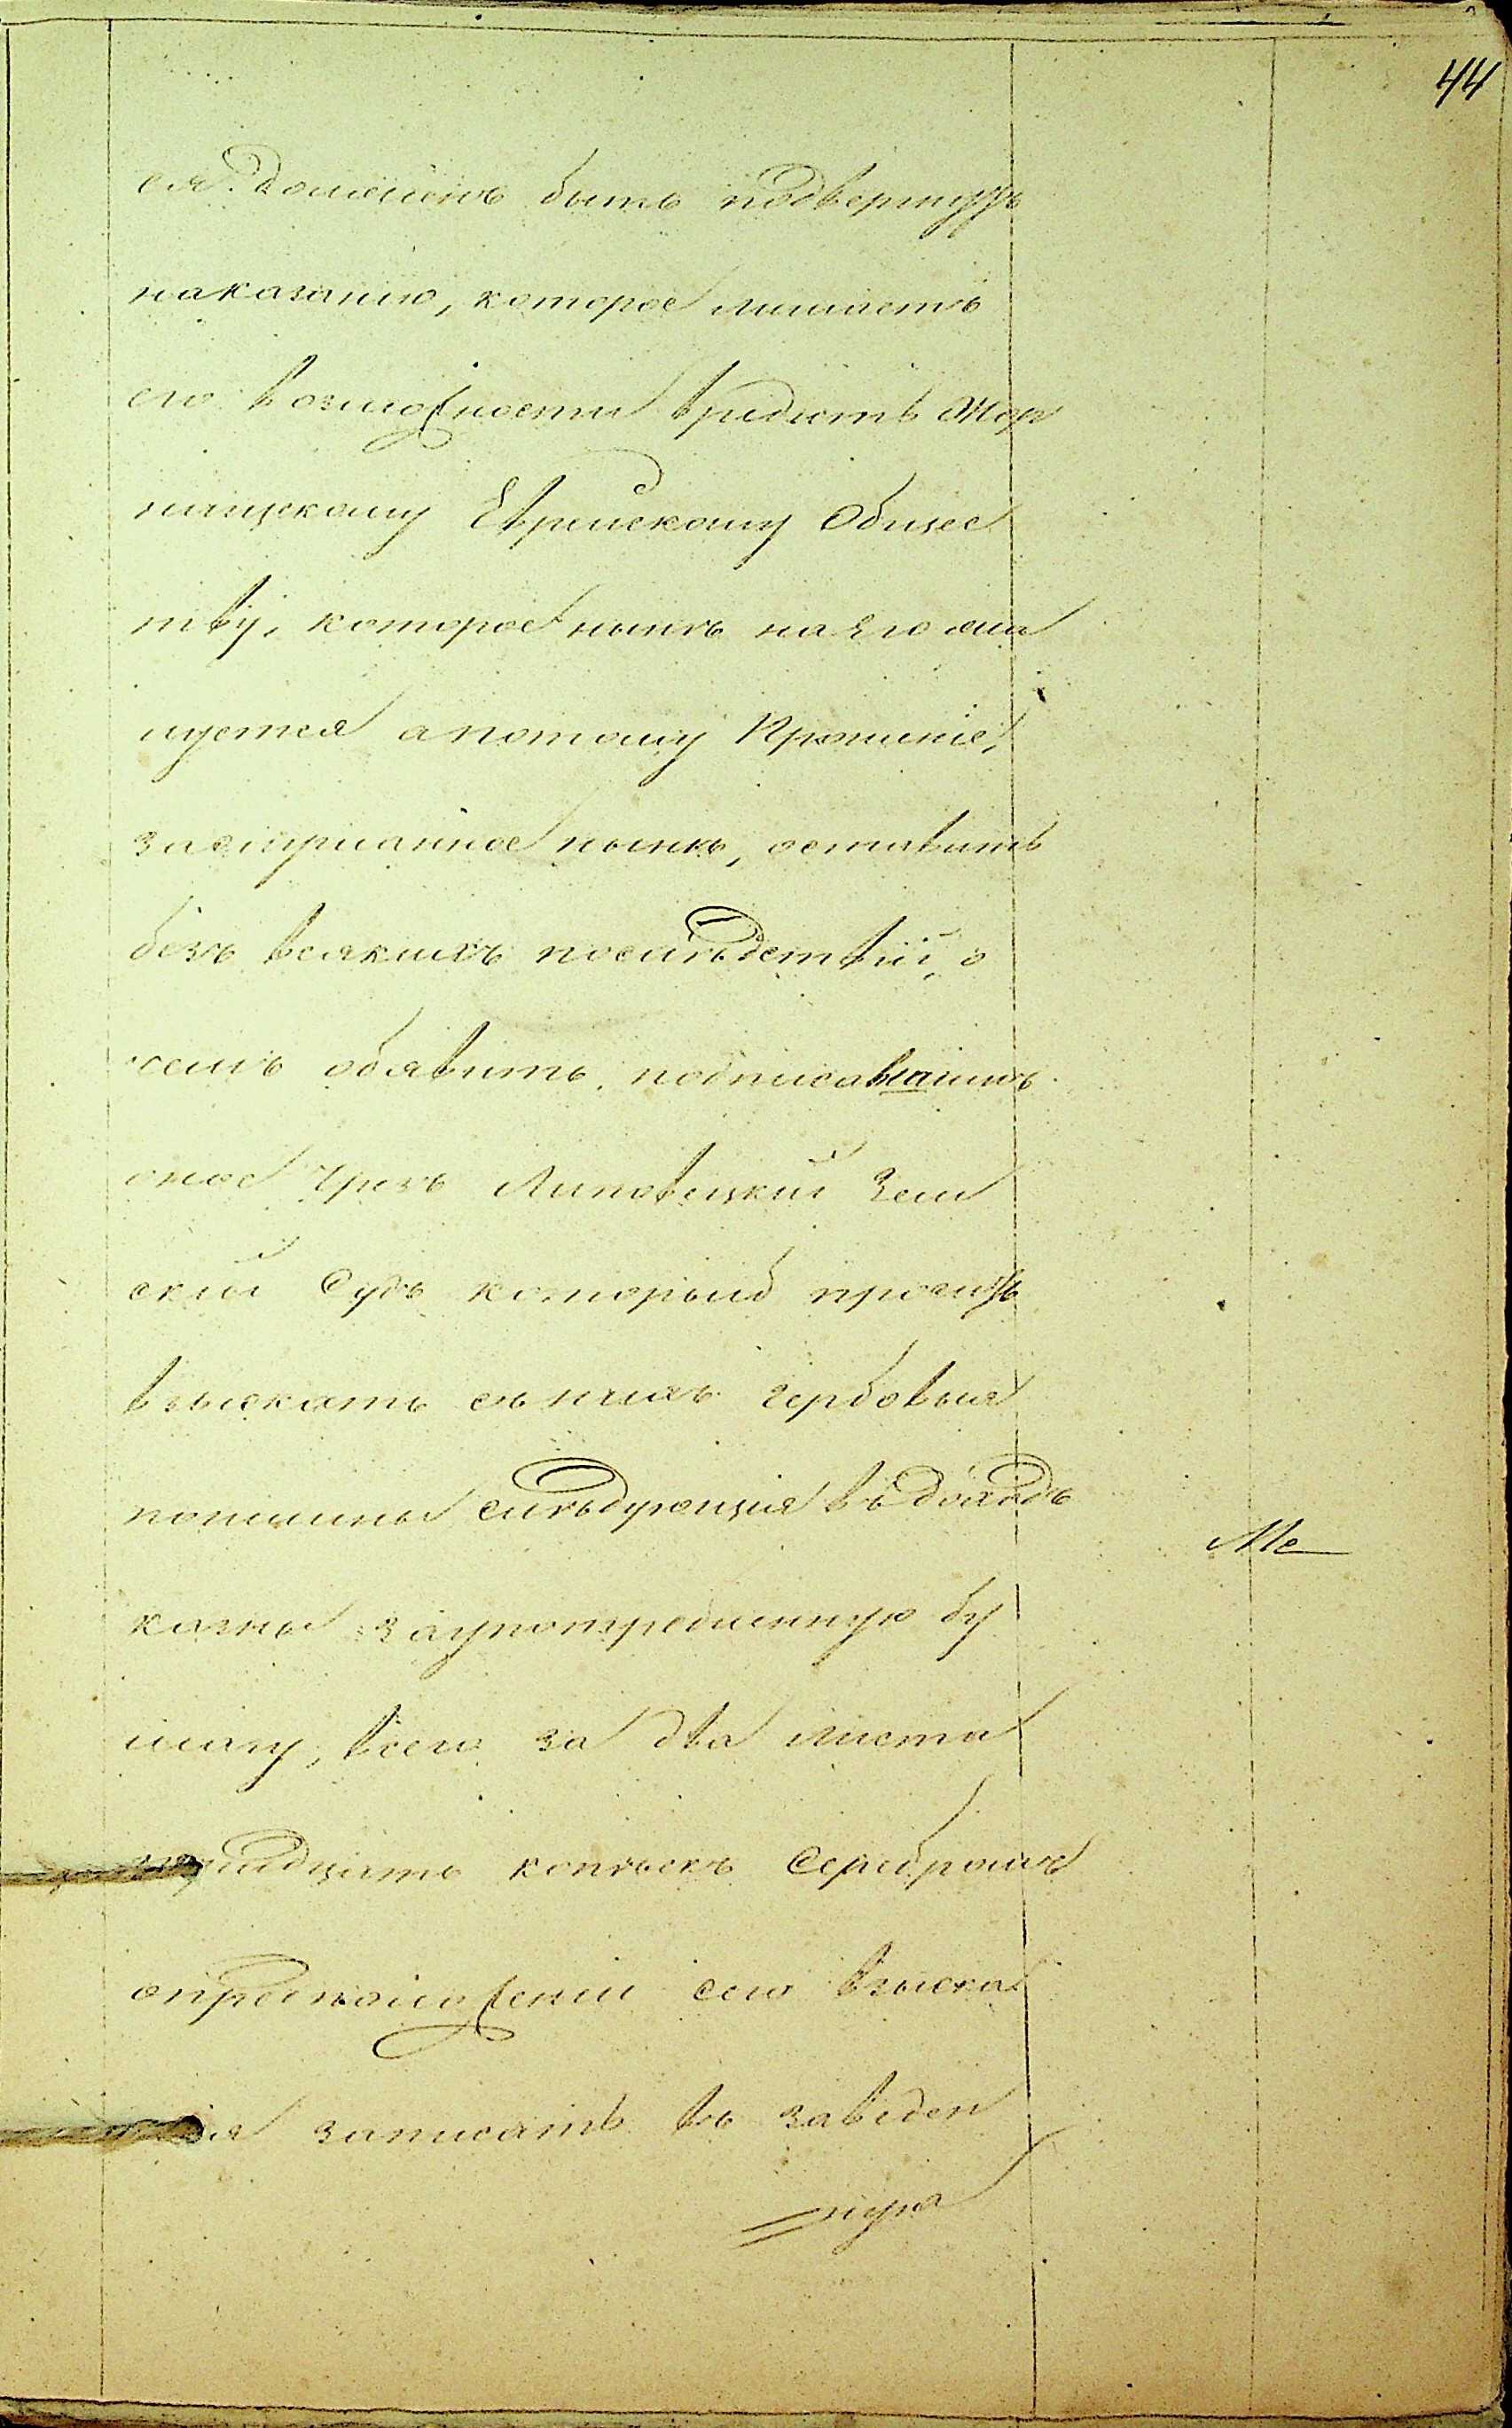 44
ся. долженъ быть подвергнутъ
наказанію, которое лишаетъ
его возможности вредить Жор
нищскому Еврейскому Общес
тву, которое нынѣ на Него жа
луется а потому Прошеніе,
заслушанное нынѣ, оставить
безъ всякихъ послѣдствій, о
чемъ объявить подписавшимъ
оное Чрезъ Липовецкій Зем
скій Судъ который проситъ
взыскать съ нихъ гербовыя
пошлины слѣдующія въ доходъ
Ме
казны за употребленную бу
магу, всего за два листа
тридцать копѣекъ серебромъ
о предположеніи сего взыска
нія записать въ заведен
ную